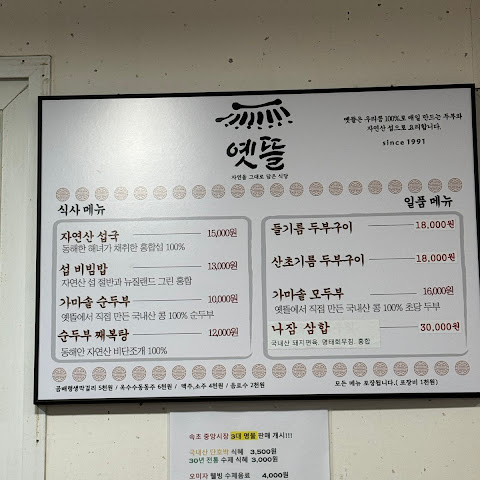 옛뜰
자연을 그대로 담은 식당
옛뜰은 우리콩 100%로 매일 만드는 두부와
자연산 섭으로 요리합니다.
since 1991
식사 메뉴
자연산 섭국 15,000원
동해안 해녀가 채취한 홍합섭 100%
섭 비빔밥 13,000원
자연산 섭 절반과 뉴질랜드 그린 홍합
가마솥 순두부 10,000원
옛뜰에서 직접 만든 국내산 콩 100% 순두부
순두부 째복탕 12,000원
동해안 자연산 비단조개 100%
일품 메뉴
들기름 두부구이 18,000원
산초기름 두부구이 18,000원
가마솥 모두부 16,000원
옛뜰에서 직접 만든 국내산 콩 100% 초당 두부
나잠 삼합 30,000원
국내산 돼지편육, 명태회무침, 홍합
곰배령생막걸리 5천원 / 옥수수동동주 6천원 / 맥주,소주 4천원 / 음료수 2천원
모든 메뉴 포장됩니다.( 포장비 1천원)
속초 중앙시장 3대 명물 판매 개시!!!
국내산 단호박 식혜 3,500원
30년 전통 수제 식혜 3,000원
오미자 웰빙 수제음료 4,000원